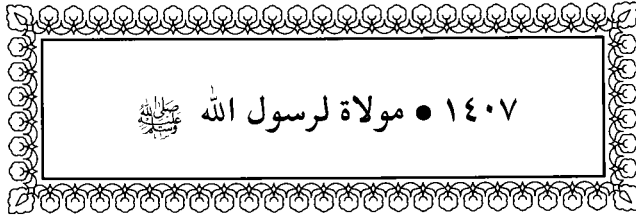 ١٤٠٧ ● مولاة لرسول الله ﷺ